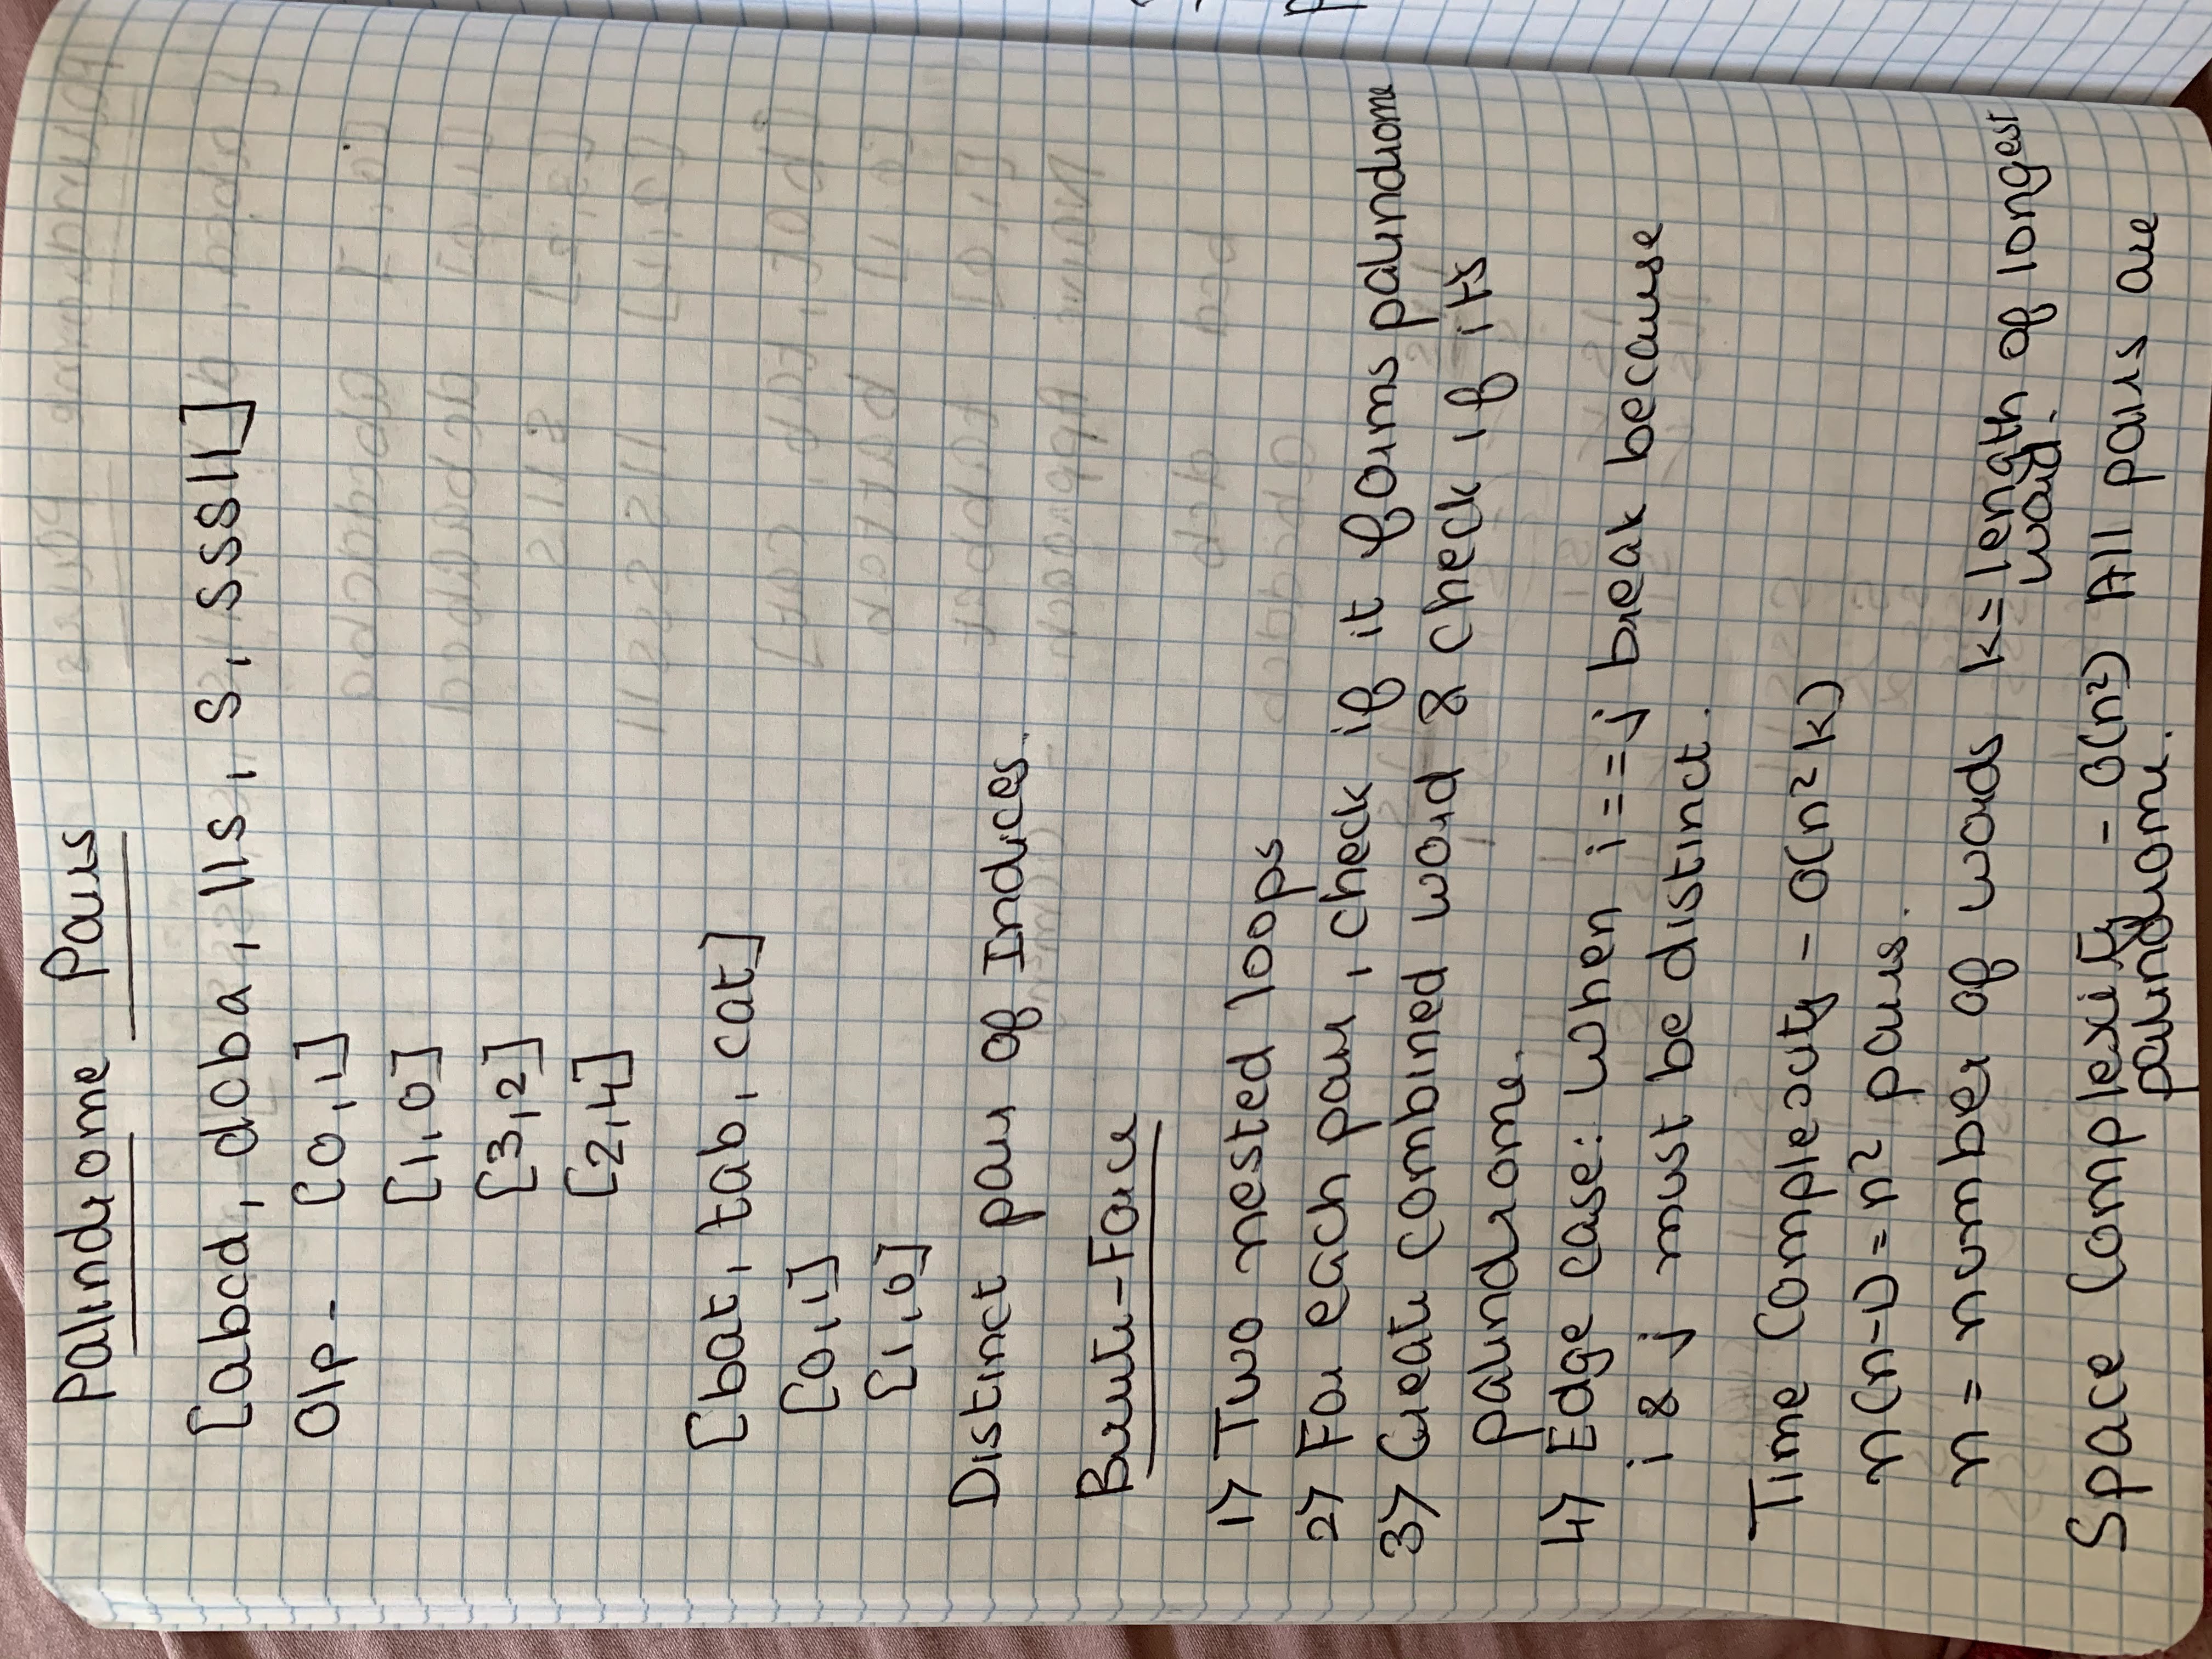 Palindrome Pairs
[abcd, dcba, lls, s, sssll]
O/p - [0,1]
[1,0]
[3,2]
[2,4]
[bat, tab, cat]
[0,1]
[1,0]
Distinct pair of Indices.
Brute-Force
1) Two nested loops
2) For each pair, check if it forms palindrome
3) Create combined word & check if it's
palindrome.
4) Edge case: When i==j break because
i & j must be distinct.
Time Complexity - O(n²k)
n(n-1) = n² pairs.
n = number of words k = length of longest
word.
Space Complexity - O(n²) All pairs are
palindrome.